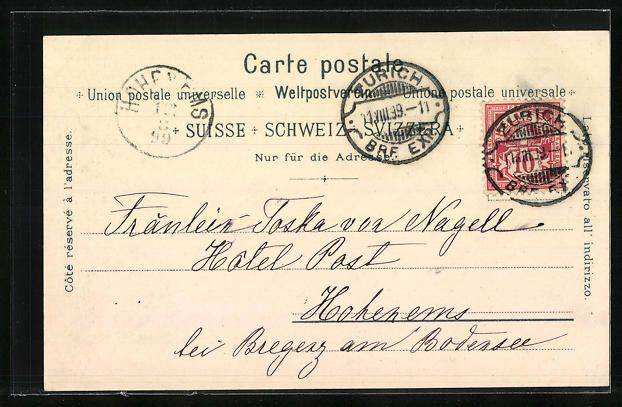 Carte postale
Union postale universelle Weltpostverein Unione postale universale
SUISSE SCHWEIZ SVIZZERA
Nur für die Adresse
Côté réservé à l'adresse.
Lato riservato all' indirizzo.
HOHENEMS
99
ZÜRICH
11.VIII.99.-11
BRF. EXP.
ZÜRICH
BRF. EX
10
Fräulein Toska von Nagell
Hôtel Post
Hohenems
bei Bregenz am Bodensee